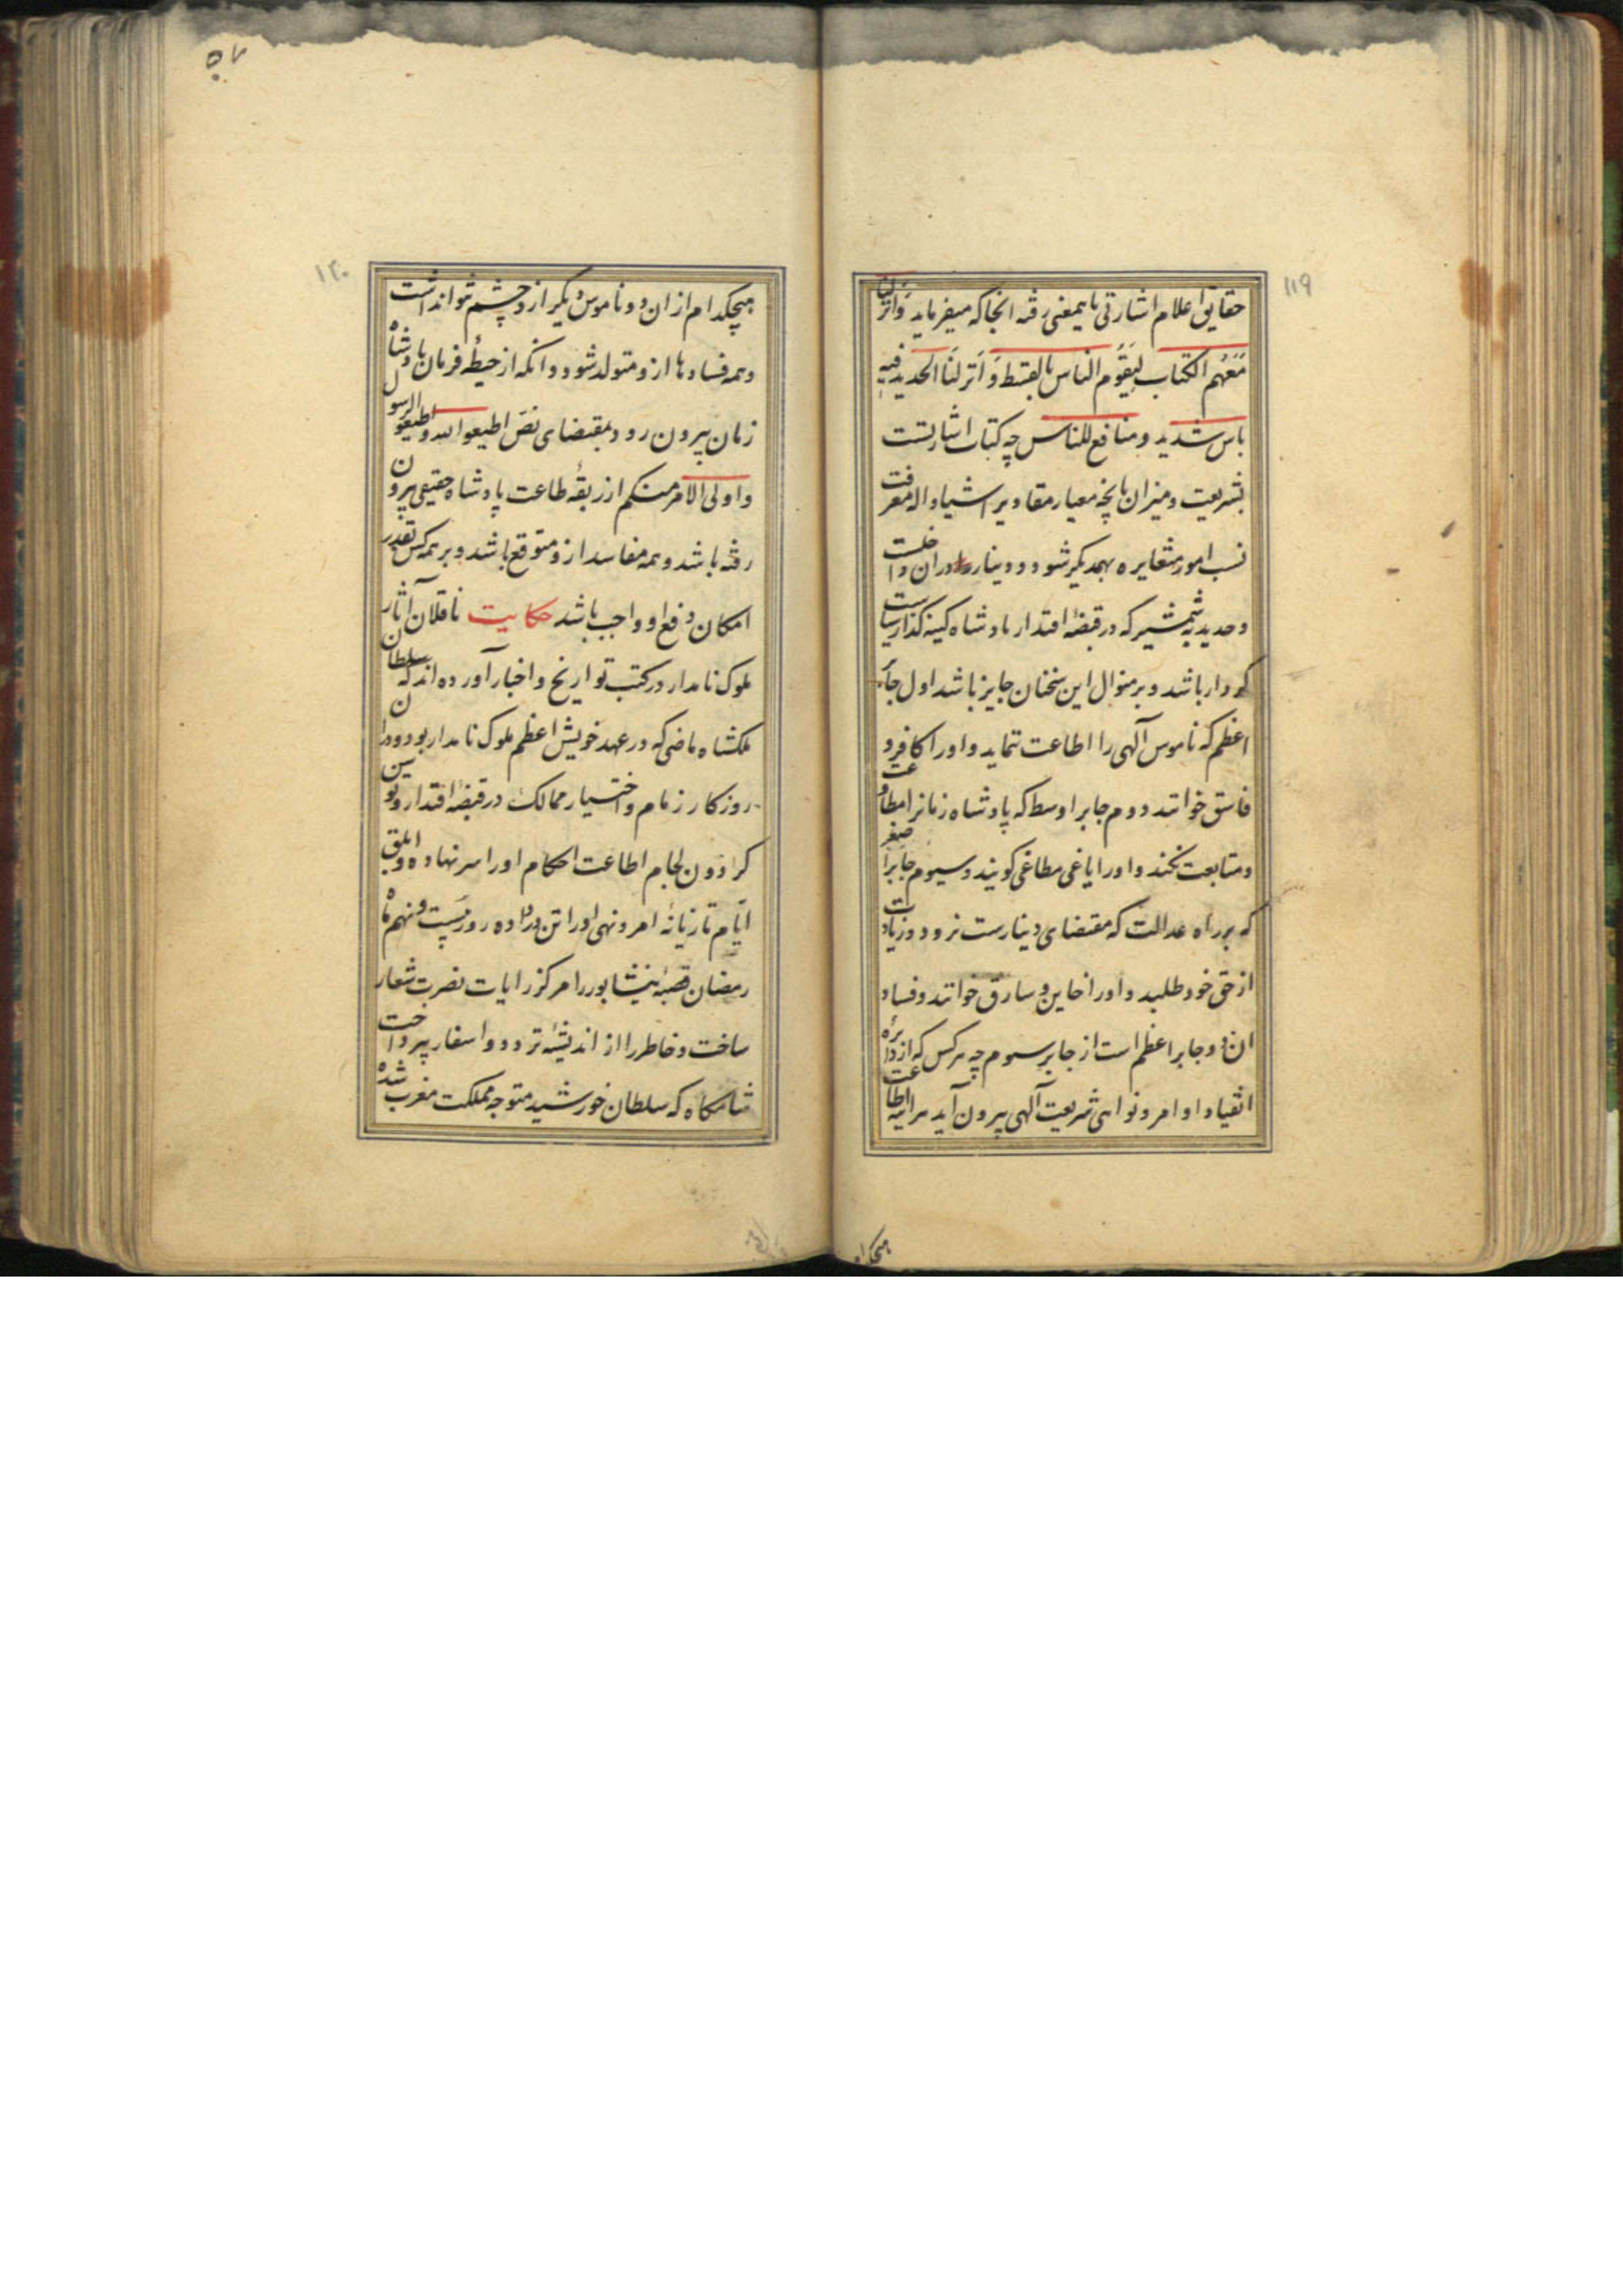 ۱۱۹
حقایق اعلام اشارتی بایمعنی رفته انجا که میفرماید وَانزَلنَا
مَعَهُم الکتاب لیَقُوم الناس بالقسط وَ اَنزلنَا الحدید فیهِ
باس شدید و منافع للناس چه کتاب اشارتست
بشریعت و میزان بانچه معیار مقادیر اشیا و اله معرفت
نسب امور متغایره بهمدیکر شود و دینار دران داخلست
و حدید بشمشیر که در قبضهٔ اقتدار بادشاه کینه کذار سیاست
کردار باشد و بر منوال این سخنان جایز باشد اول جائر
اعظم که ناموس آلهی را اطاعت ننماید و اورا کافر و
فاسق خوانند دوم جابر اوسط که پادشاه زمانرا مطاوعت
و متابعت نکند و اورا یاغی مطاغی کویند و سیوم جابر اصغر
که بر راه عدالت که مقتضای دینارست نرود و زیادت
از حق خود طلبد و اورا خاین و سارق خوانند و فساد
ان دو جابر اعظم است از جابر سیوم چه هرکس که از دایرهٔ
انقیاد اوامر و نواهی شریعت آلهی بیرون آید هراینه اطاعت
۵۷
۱۲۰
هیچکدام از ان دو ناموس دیکر ازو چشم نتوانداشت
و همه فسادها ازو متولد شود و انکه از حیطهٔ فرمان بادشاه
زمان بیرون رود بمقتضای نص اطیعوا الله و اطیعو الرسول
و اولی الامر منکم از ربقهٔ طاعت پادشاه حقیقی بیرون
رفته باشد و همه مفاسد ازو متوقع باشد و بر همه کس بقدر
امکان دفع او واجب باشد حکایت ناقلان آثار
ملوک نامدار در کتب تواریخ و اخبار آورده اند که سلطان
ملکشاه ماضی که در عهد خویش اعظم ملوک نامدار بود و دران
روزکار زمام و اختیار ممالک در قبضهٔ اقتدار و توسن
کردون لجام اطاعت احکام اورا سر نهاده و ابلق
ایّام تازیانهٔ امر و نهی اورا تن در داده روز بیست و نهم ماه
رمضان قصبهٔ نیشابور را مرکز رایات نصرت شعار
ساخت و خاطر را از اندیشهٔ تردد و اسفار بپرداخت
شامکاه که سلطان خورشید متوجه مملکت مغرب شده